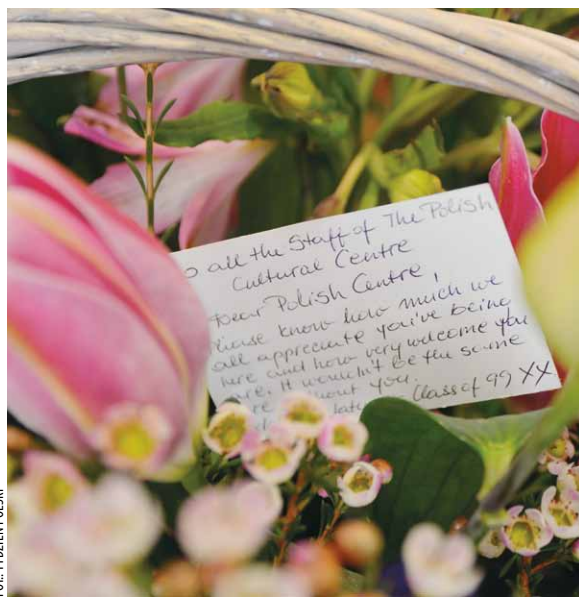 all the Staff of The Polish
Cultural Centre
Dear Polish Centre,
know how much we
all appreciate you've being
here and how very welcome you
are. It wouldn't be the same
without you.
Class of 99 XX